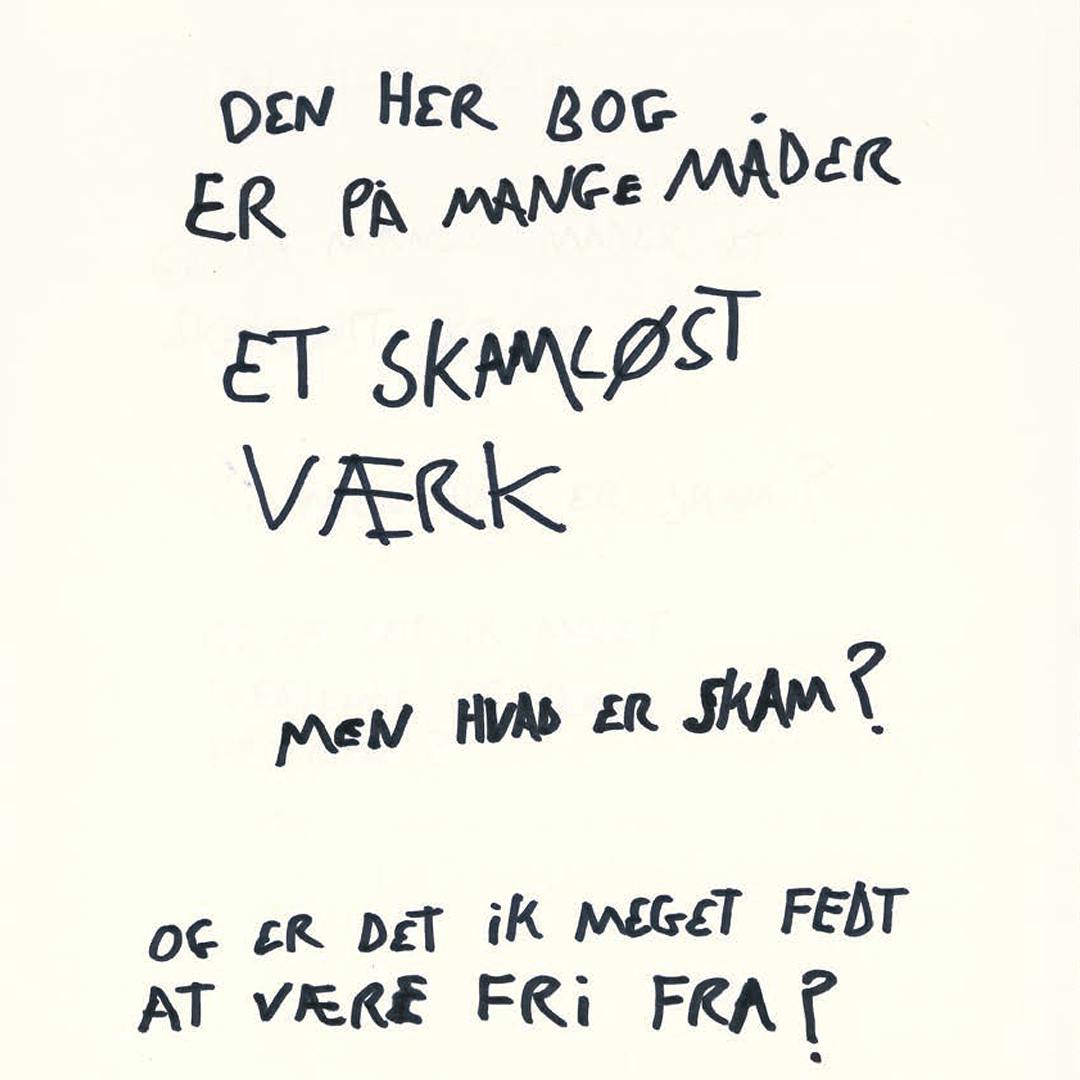 DEN HER BOG
ER PÅ MANGE MÅDER
ET SKAMLØST
VÆRK
MEN HVAD ER SKAM?
OG ER DET iK MEGET FEDT
AT VÆRE FRi FRA?